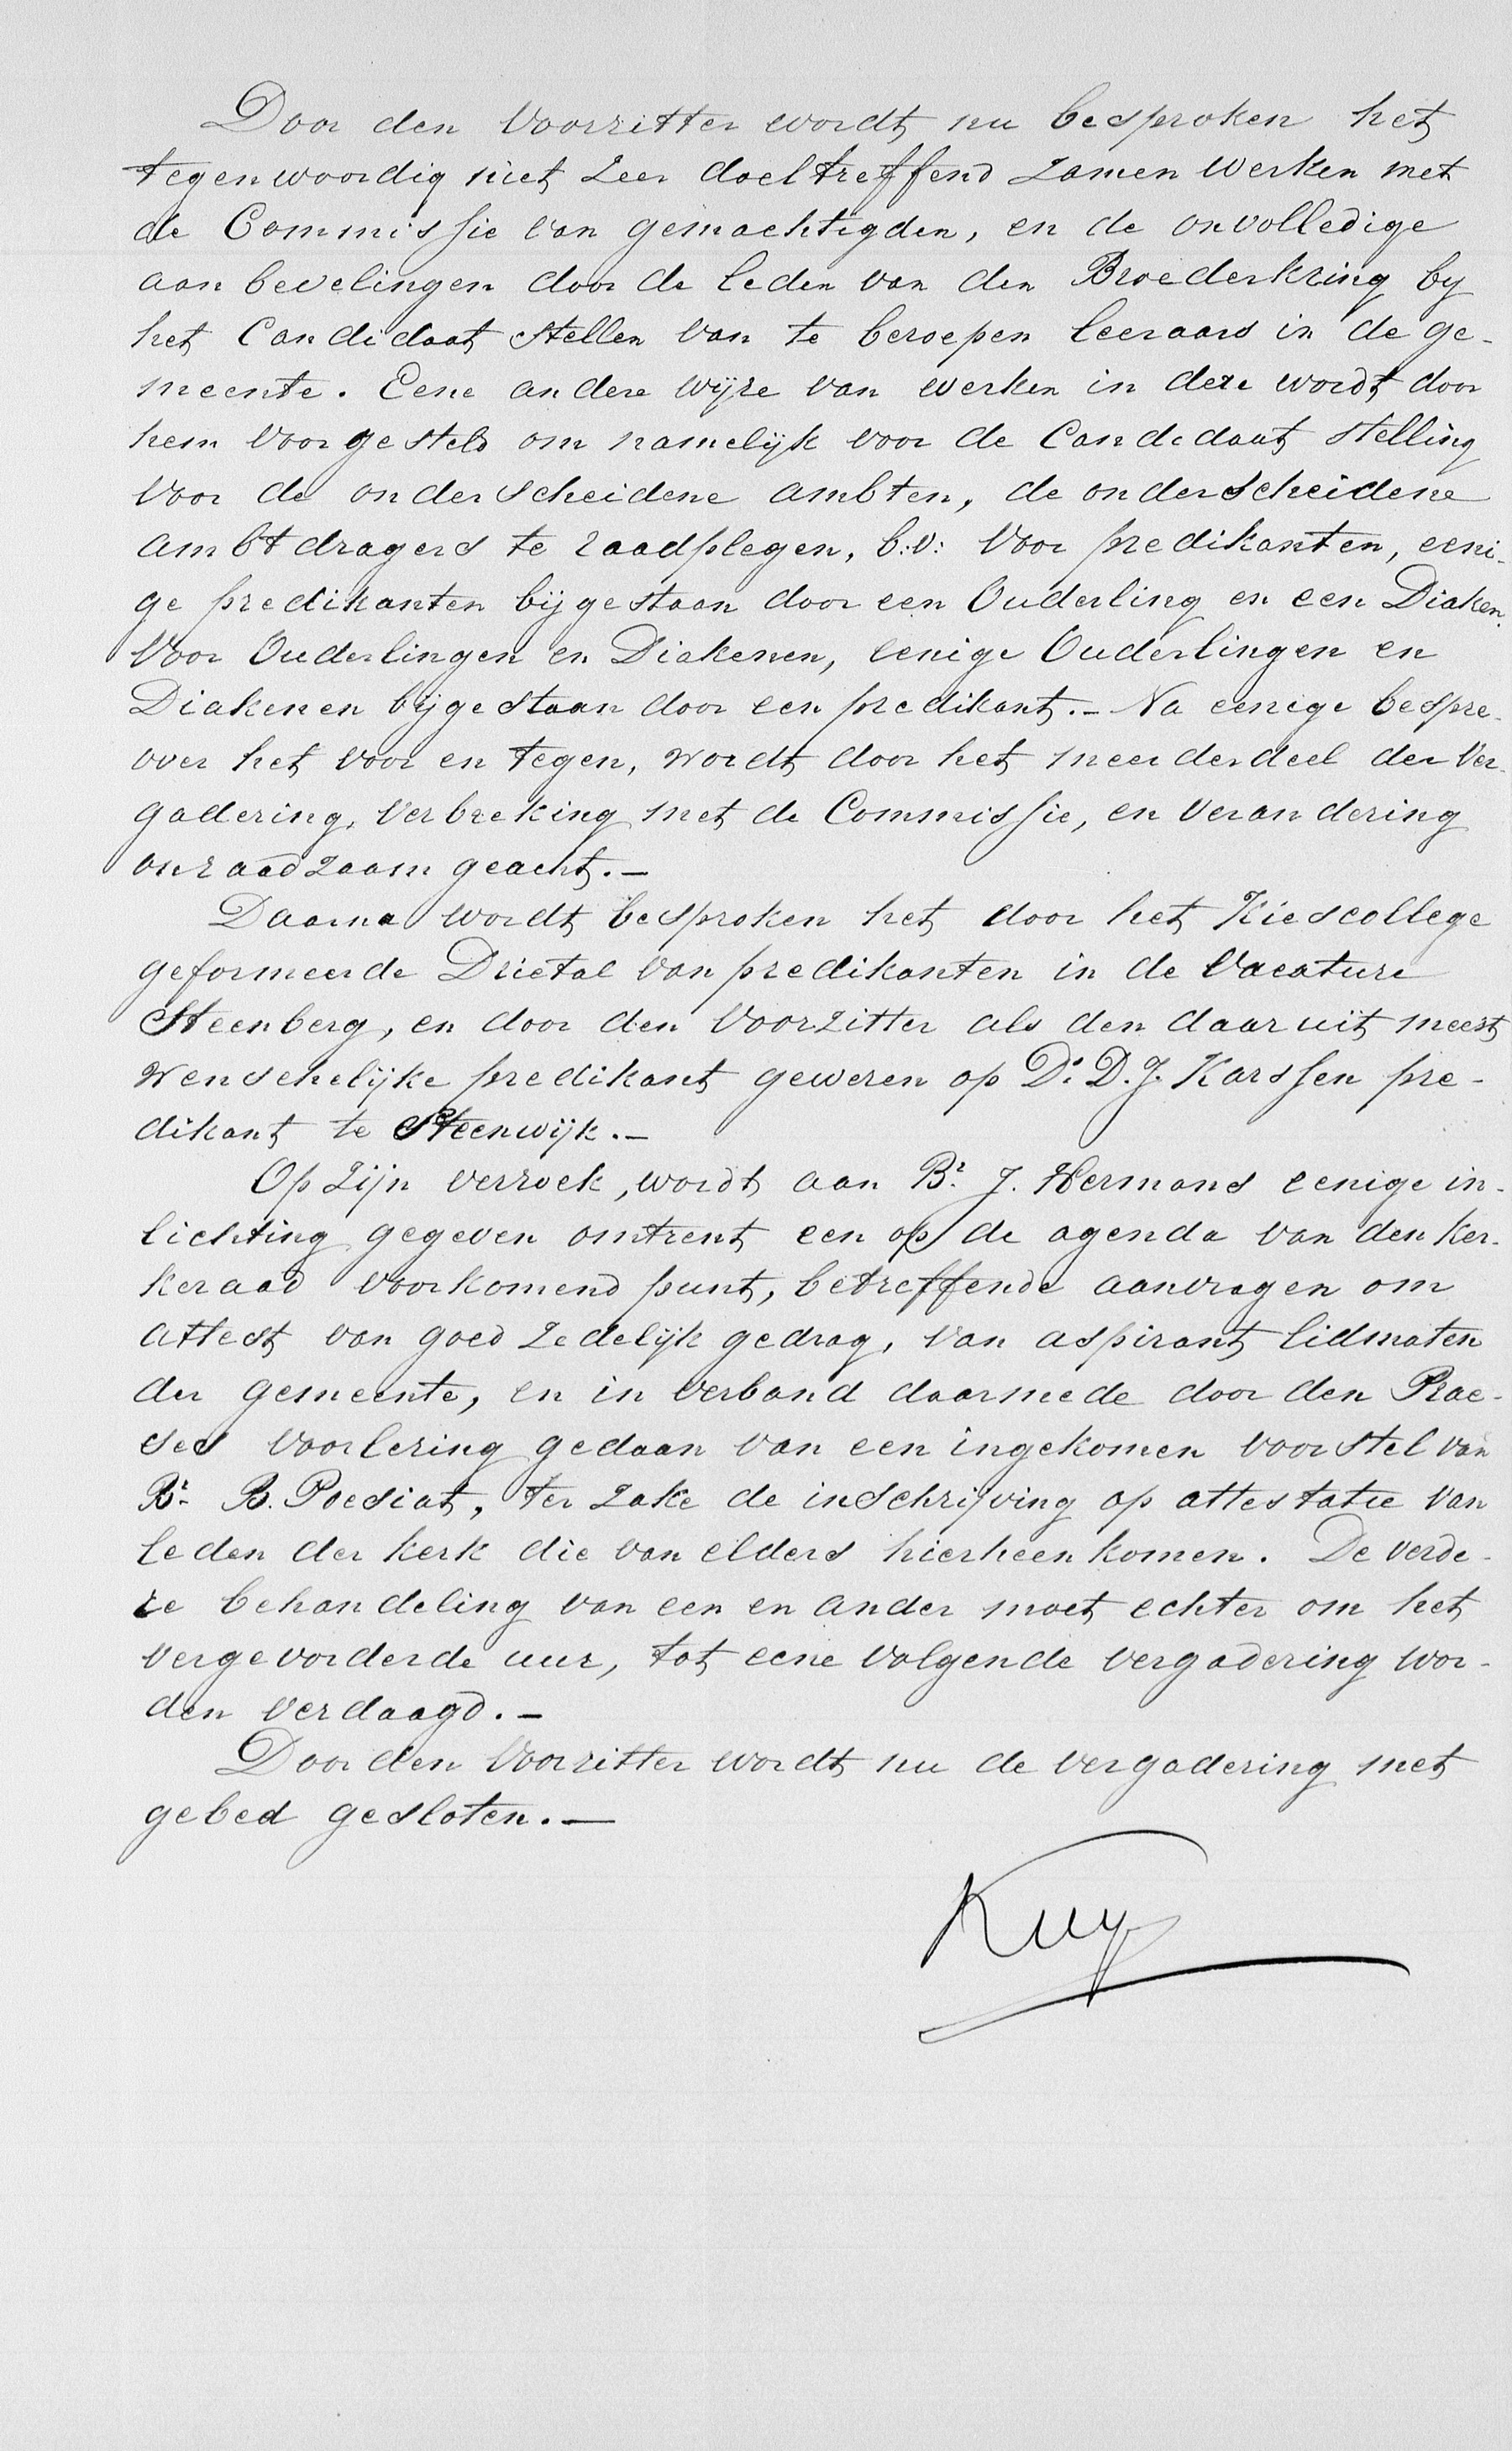 Door den Voorzitter wordt nu besproken het
tegenwoordig niet zeer doeltreffend zamen werken met
de Commissie van gemachtigden, en de onvolledige
aanbevelingen door de leden van den Broederkring by
het Candidaat stellen van te beroepen leeraars in de ge-
meente. Eene andere wijze van werken in deze wordt door
hem voorgesteld om namelijk voor de Candidaat stelling
voor de onderscheidene ambten, de onderscheidene
ambtdragers te raadplegen, b:v: voor predikanten, eeni-
ge predikanten bijgestaan door een Ouderling en een Diaken.
Voor Ouderlingen en Diakenen, eenige Ouderlingen en
Diakenen bijgestaan door een predikant.- Na eenige bespre-
over het voor en tegen, wordt door het meerderdeel der Ver-
gadering, verbreking met de Commissie, en verandering
onraadzaam geacht.-
Daarna wordt besproken het door het Kiescollege
geformeerde Drietal van predikanten in de Vacature
Steenberg, en door den Voorzitter als den daaruit meest
wenschelijke predikant gewezen op Ds. D.J. Karssen pre-
dikant te Steenwijk.-
Op zijn verzoek, wordt aan Br. J. Hermans eenige in-
lichting gegeven omtrent een op de agenda van den Ker-
keraad voorkomend punt, betreffende aanvragen om
attest van goed zedelijk gedrag, van aspirant lidmaten
der gemeente, en in verband daarmede door den Prae-
ses voorlezing gedaan van een ingekomen voorstel van
Br. B. Poesiat, ter zake de inschrijving op attestatie van
leden der kerk die van elders hierheen komen. De verde-
re behandeling van een en ander moet echter om het
vergevorderde uur, tot eene volgende vergadering wor-
den verdaagd.-
Door den Voorzitter wordt nu de vergadering met
gebed gesloten.-